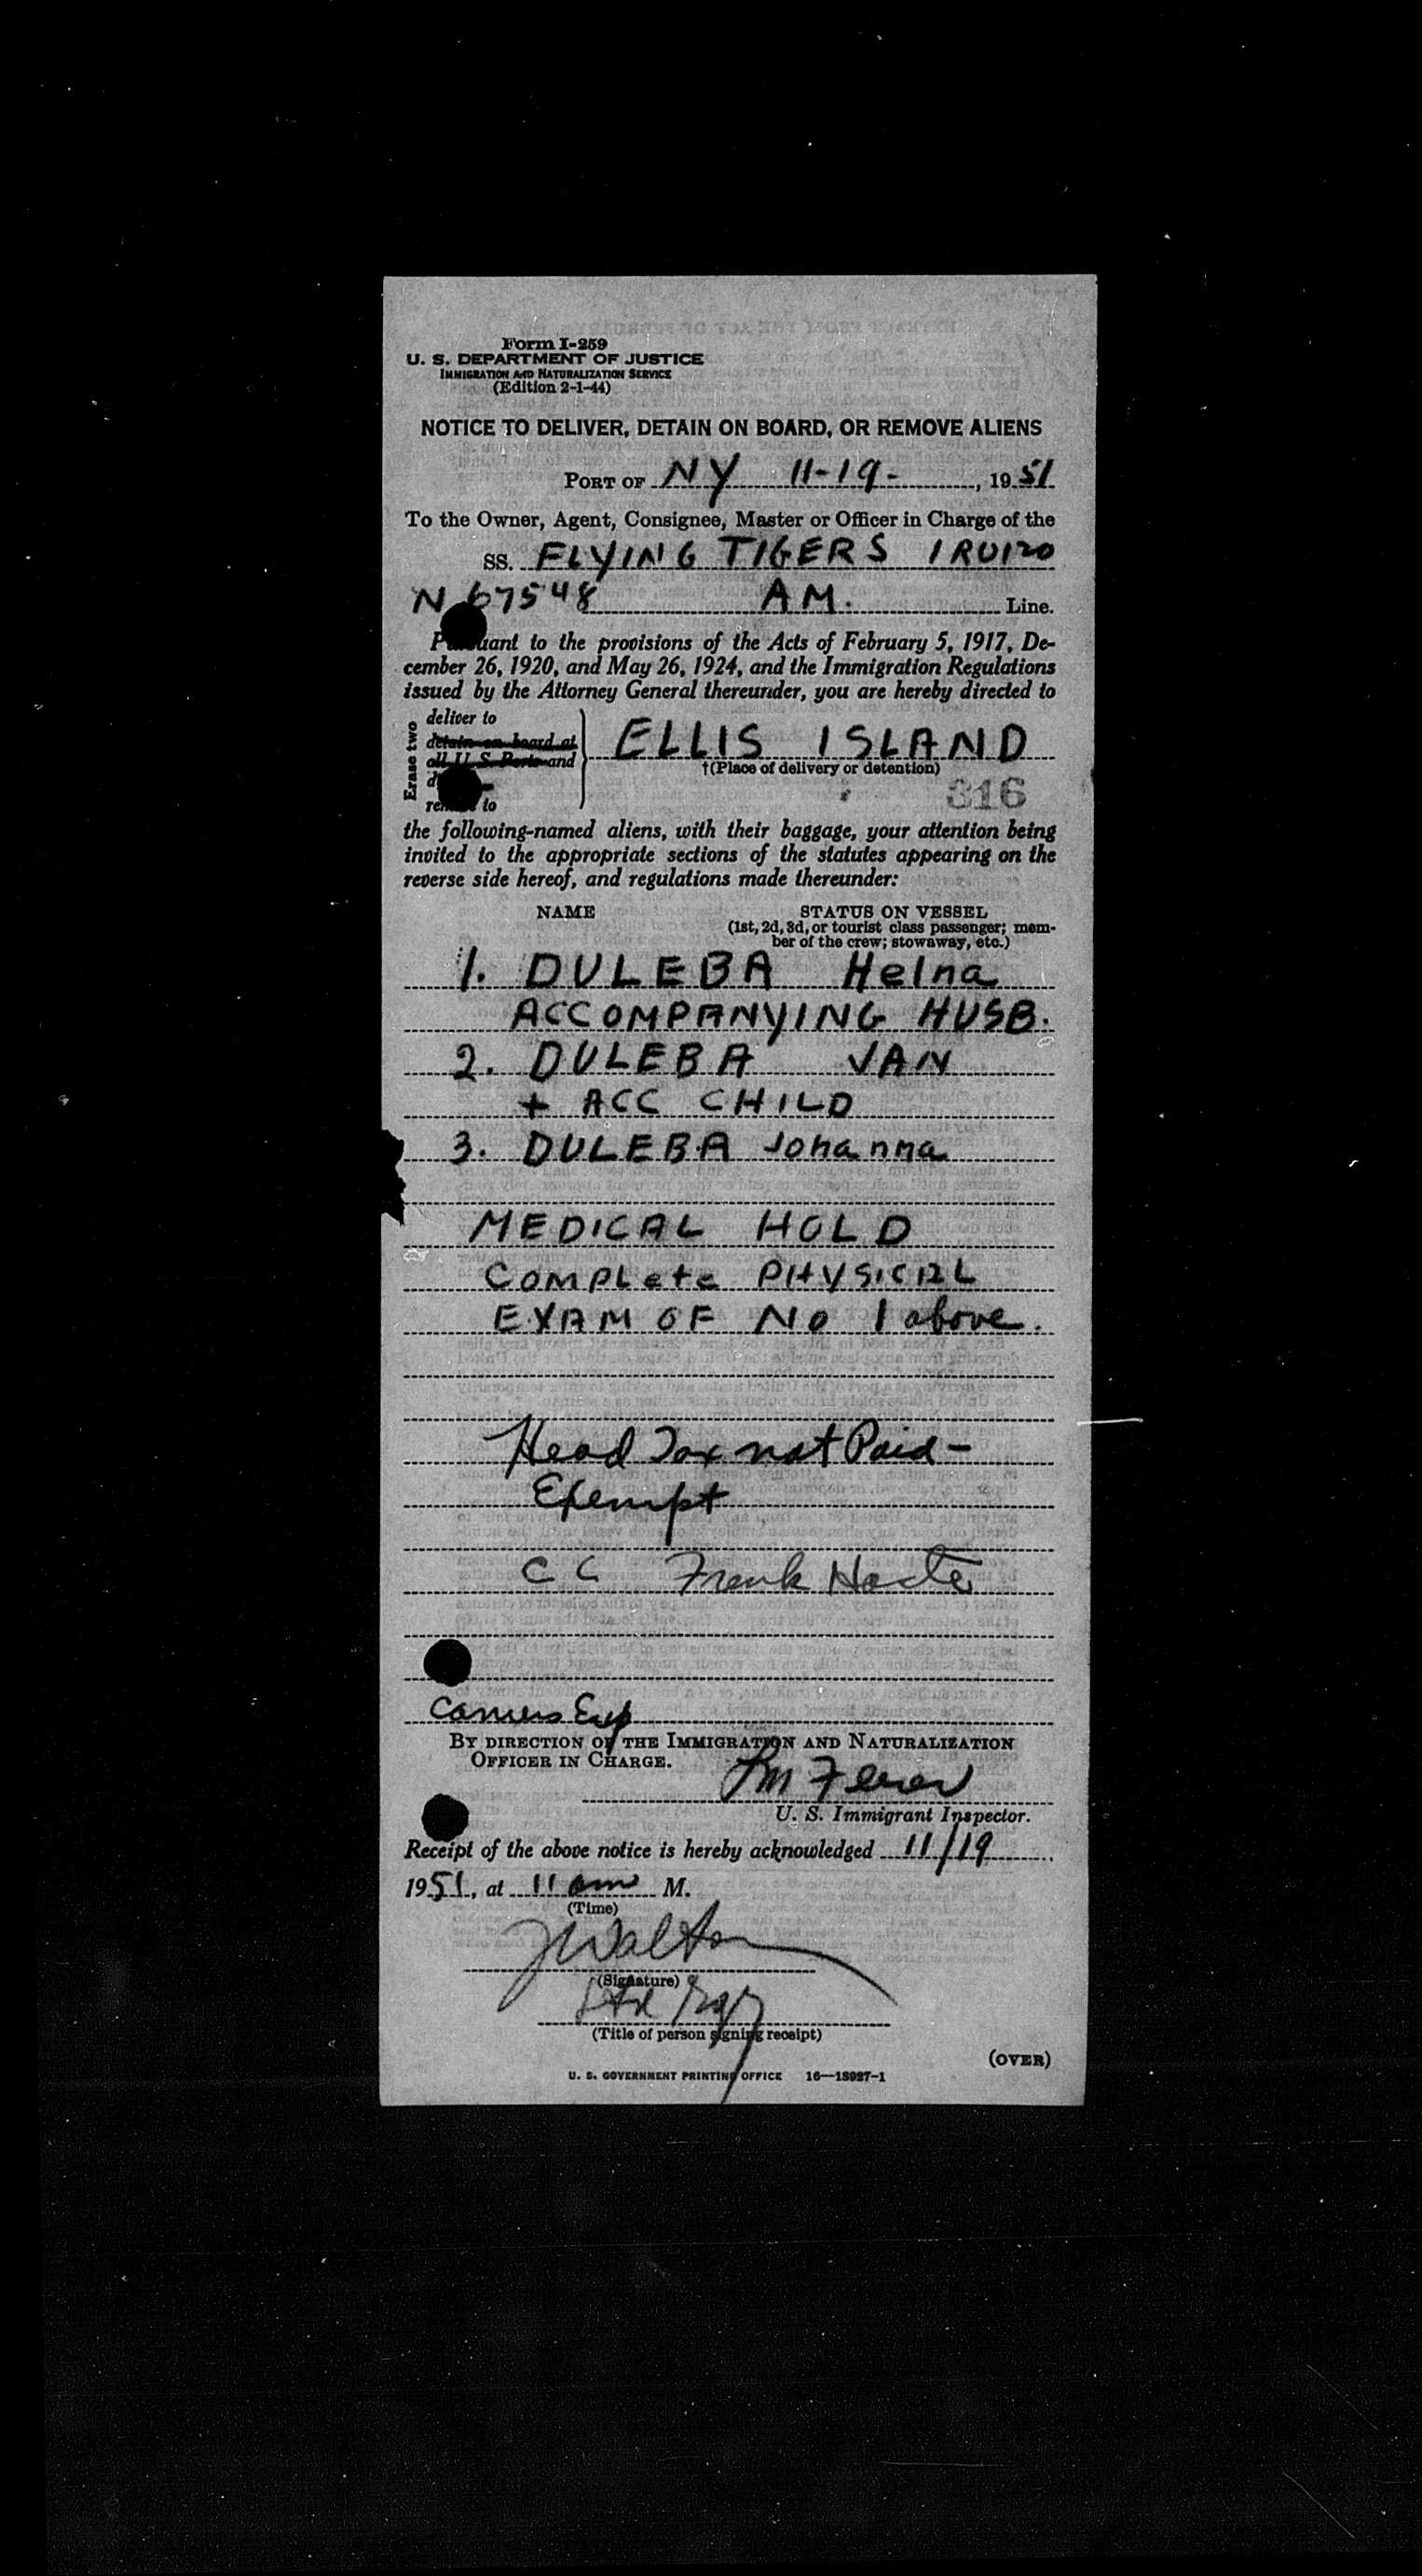 Form I-259
U. S. DEPARTMENT OF JUSTICE
IMMIGRATION AND NATURALIZATION SERVICE
(Edition 2-1-44)
NOTICE TO DELIVER, DETAIN ON BOARD, OR REMOVE ALIENS
PORT OF NY 11-19-, 1951
To the Owner, Agent, Consignee, Master or Officer in Charge of the
SS. FLYING TIGERS IRO120
N 67548 AM. Line.
Pursuant to the provisions of the Acts of February 5, 1917, De-
cember 26, 1920, and May 26, 1924, and the Immigration Regulations
issued by the Attorney General thereunder, you are hereby directed to
Erase two
deliver to
detain on board at
all U. S. Ports and
remove to
ELLIS ISLAND
†(Place of delivery or detention)
316
the following-named aliens, with their baggage, your attention being
invited to the appropriate sections of the statutes appearing on the
reverse side hereof, and regulations made thereunder:
NAME STATUS ON VESSEL
(1st, 2d, 3d, or tourist class passenger; mem-
ber of the crew; stowaway, etc.)
1. DULEBA Helna
ACCOMPANYING HUSB.
2. DULEBA JAN
+ ACC CHILD
3. DULEBA Johanna
MEDICAL HOLD
COMPLete PHYSICAL
EXAM OF No 1 above.
Head Tax not Paid-
Exempt
CC Frank
Carriers Exp
BY DIRECTION OF THE IMMIGRATION AND NATURALIZATION
OFFICER IN CHARGE.
U. S. Immigrant Inspector.
Receipt of the above notice is hereby acknowledged 11/19
1951, at 11 am M.
(Time)
J Walton
(Signature)
(Title of person signing receipt)
(OVER)
U. S. GOVERNMENT PRINTING OFFICE 16—18927-1